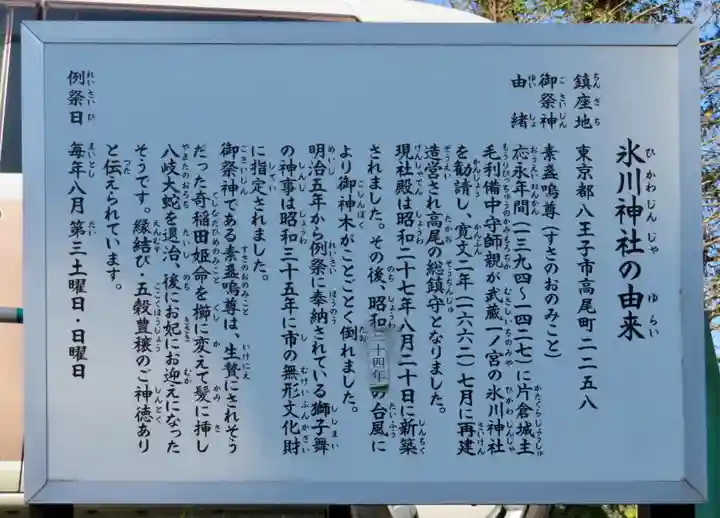 氷川神社の由来
鎮座地 東京都八王子市高尾町二二五八
御祭神 素盞嗚尊(すさのおのみこと)
由緒 応永年間(一三九四~一四二七)に片倉城主
毛利備中守師親が武蔵一ノ宮の氷川神社
を勧請し、寛文二年(一六六二)七月に再建
造営され高尾の総鎮守となりました。
現社殿は昭和二十七年八月二十日に新築
されました。その後、昭和三十四年の台風に
より御神木がことごとく倒れました。
明治五年から例祭に奉納されている獅子舞
の神事は昭和三十五年に市の無形文化財
に指定されました。
御祭神である素盞嗚尊は、生贄にされそう
だった奇稲田姫命を櫛に変えて髪に挿し
八岐大蛇を退治、後にお妃にお迎えになった
そうです。縁結び・五穀豊穣のご神徳あり
と伝えられています。
例祭日 毎年八月 第三土曜日・日曜日